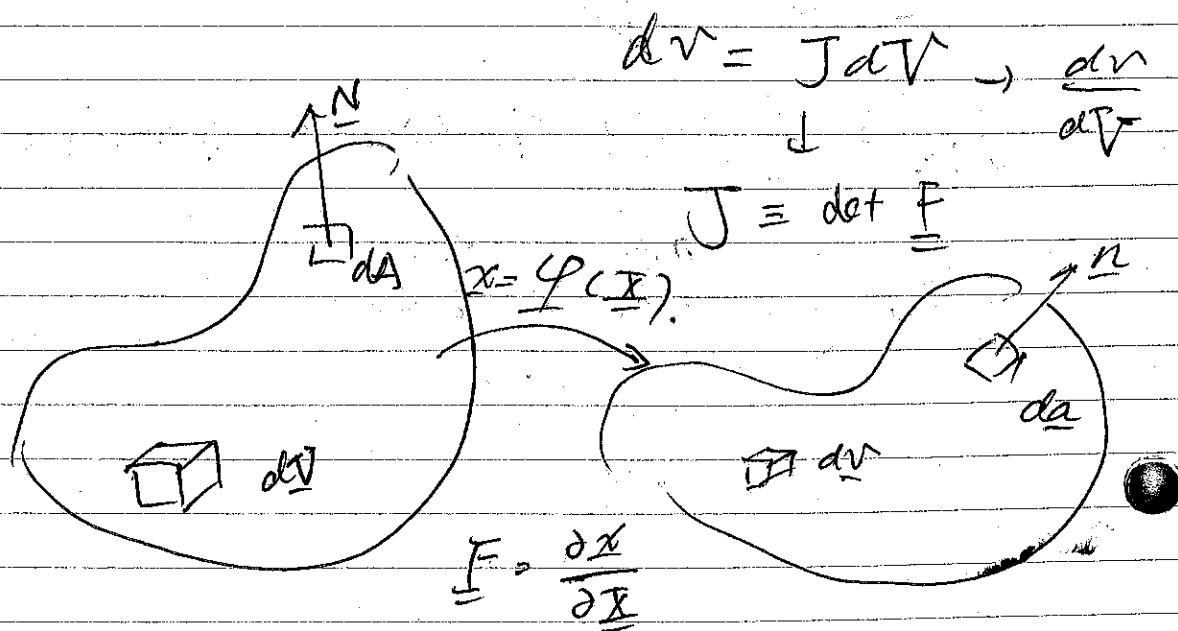 dv = J dV → dv/dV
↓
J ≡ det F
N
dA
x = φ(X).
n
da
dV
dv
F = ∂x/∂X